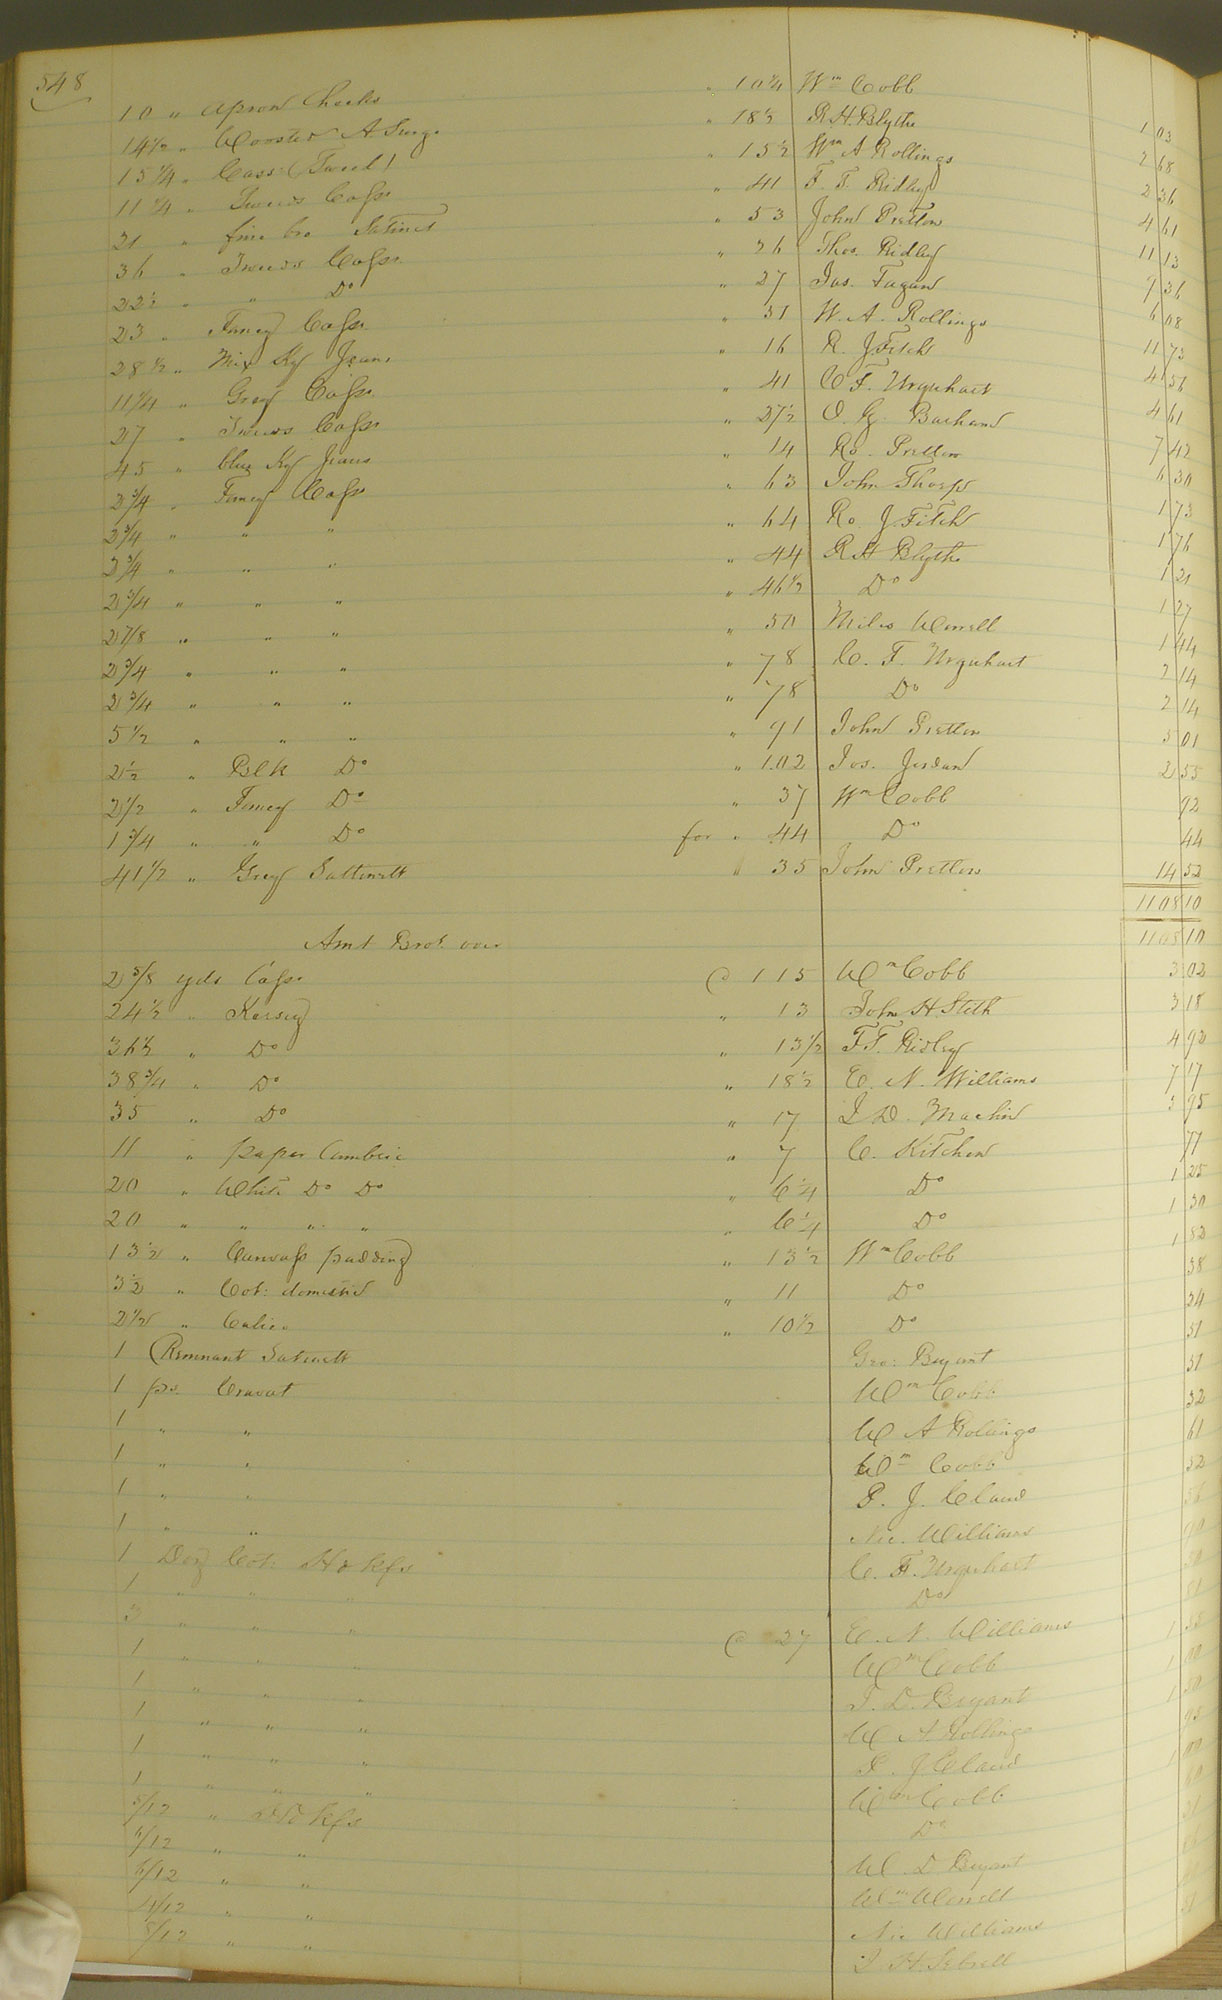 548
10 " Apron Checks " 10 1/4 Wm Cobb 1 03
14 1/2 " Wooster A Surge " 18 1/2 R. H. Blythe 2 68
15 1/4 " Cass: (Tweed) " 15 1/2 Wm A Rollings 2 36
11 1/4 " Tweeds Cass " 41 F. T. Ridley 4 61
21 " fine bro Satinet " 53 John Pretlow 11 13
36 " Tweeds Cass " 26 Thos. Ridley 9 36
22 1/2 " " Do " 27 Jas. Fagan 6 08
23 " Fancy Cass " 51 W. A. Rollings 11 73
28 1/2 " Mix Ky Jeans " 16 R. J Fitch 4 56
11 1/4 " Grey Cass " 41 C. F. Urquhart 4 61
27 " Tweeds Cass " 27 1/2 7 42
45 " blue Ky Jeans " 14 Ro. Pretlow 6 30
2 3/4 " Fancy Cass " 63 John Thorp 1 73
2 3/4 " " " " 64 Ro. J Fitch 1 76
2 3/4 " " " " 44 R H Blythe 1 21
2 3/4 " " " " 46 1/2 Do 1 27
2 7/8 " " " " 50 Miles Worrell 1 44
2 3/4 " " " " 78 C. F. Urquhart 2 14
2 3/4 " " " " 78 Do 2 14
5 1/2 " " " " 91 John Pretlow 5 01
2 1/2 " Blk Do " 1.02 Jos. Jordan 2 55
2 1/2 " Fancy Do " 37 Wm Cobb 92
1 3/4 " " Do for " 44 Do 44
41 1/2 " Grey Sattinett " 35 John Pretlow 14 52
1108 10
Amt Brot. over 1108 10
2 5/8 yds Cass @ 1 15 Wm Cobb 3 02
24 1/2 " Kersey " 13 John H. Stith 3 18
36 1/2 " Do " 13 1/2 F. T. Ridley 4 92
38 3/4 " Do " 18 1/2 E. N. Williams 7 17
35 " Do " 17 J D. Machin 5 95
11 " paper Cambric " 7 C. Kitchen 77
20 " White Do Do " 6 1/4 Do 1 25
20 " " " " " 6 1/4 Do 1 30
13 1/2 " Canvass padding " 13 1/2 Wm Cobb 1 82
3 1/2 " Cot: domestic " 11 Do 38
2 1/4 " Calico " 10 1/2 Do 24
1 Remnant Satinett Geo: Bryant 51
1 ps. Cravat Wm Cobb 51
1 " " W A Rollings 52
1 " " Wm Cobb 61
1 " " P. J. Claud 52
1 " " Nic. Williams 56
1 Doz Cot: Hdkfs C. F. Urquhart
1 " " " Do
3 " " " @ 27 E. N. Williams
1 " " " Wm Cobb
1 " " " J. D. Bryant
1 " " " W A. Rollings
1 " " " P. J Claud
1 " " " Wm Cobb
5/12 " Hdkfs Do
6/12 " " W. D Bryant
6/12 " " Wm Worrell
4/12 " " Nic Williams
8/12 " " J. H. Sebrell